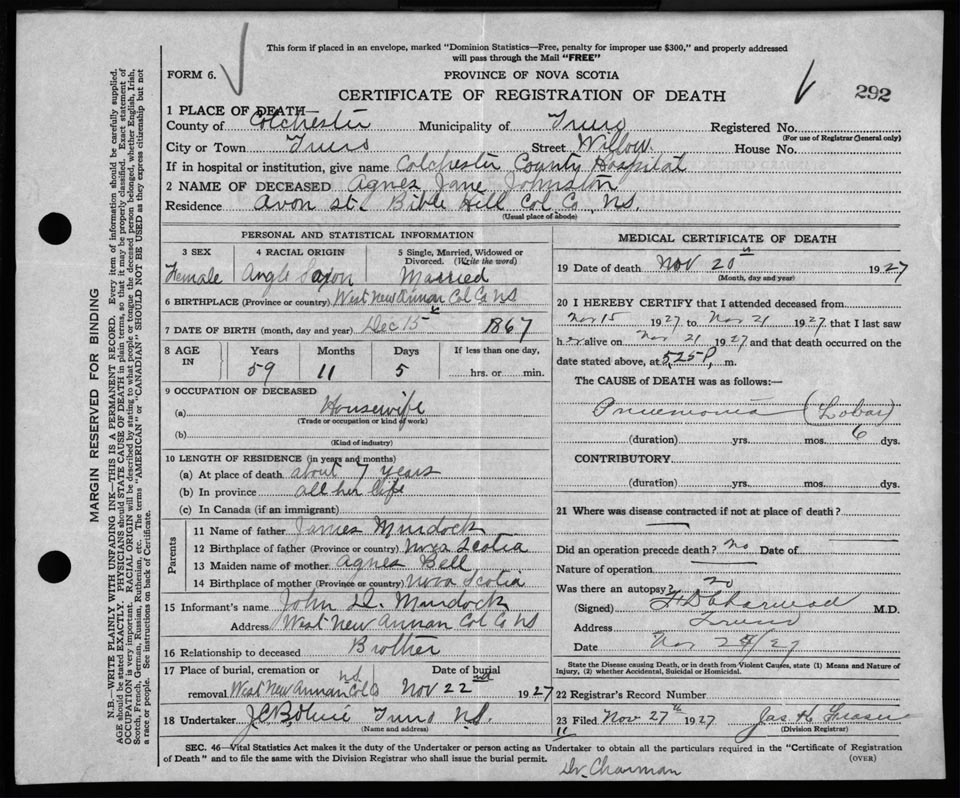 This form if placed in an envelope, marked "Dominion Statistics—Free, penalty for improper use $300," and properly addressed
will pass through the Mail "FREE"
FORM 6.
PROVINCE OF NOVA SCOTIA
CERTIFICATE OF REGISTRATION OF DEATH
292
1 PLACE OF DEATH—
County of Colchester Municipality of Truro Registered No.
(For use of Registrar General only)
City or Town Truro Street Willow House No.
If in hospital or institution, give name Colchester County Hospital
2 NAME OF DECEASED Agnes Jane Johnston
Residence Avon St. Bible Hill Col Co, NS.
(Usual place of abode)
PERSONAL AND STATISTICAL INFORMATION
3 SEX 4 RACIAL ORIGIN 5 Single, Married, Widowed or
Divorced. (Write the word)
Female Anglo Saxon Married
6 BIRTHPLACE (Province or country) West New Annan Col Co NS
7 DATE OF BIRTH (month, day and year) Dec 15th 1867
8 AGE IN Years Months Days If less than one day,
59 11 5 hrs. or min.
9 OCCUPATION OF DECEASED
(a) Housewife
(Trade or occupation or kind of work)
(b)
(Kind of industry)
10 LENGTH OF RESIDENCE (in years and months)
(a) At place of death about 7 years
(b) In province all her life
(c) In Canada (if an immigrant)
Parents
11 Name of father James Murdock
12 Birthplace of father (Province or country) Nova Scotia
13 Maiden name of mother Agnes Bell
14 Birthplace of mother (Province or country) Nova Scotia
15 Informant's name John D. Murdock
Address West New Annan Col Co NS
16 Relationship to deceased Brother
17 Place of burial, cremation or Date of burial
removal West New Annan Col Co NS Nov 22nd 1927
18 Undertaker Truro NS.
(Name and address)
MEDICAL CERTIFICATE OF DEATH
19 Date of death Nov 20th 1927
(Month, day and year)
20 I HEREBY CERTIFY that I attended deceased from
Nov 15 1927 to Nov 21 1927 that I last saw
her alive on Nov 21 1927 and that death occurred on the
date stated above, at 5,25 P. m.
The CAUSE of DEATH was as follows:—
Pneumonia (Lobar)
(duration) yrs. mos. 6 dys.
CONTRIBUTORY.
(duration) yrs. mos. dys.
21 Where was disease contracted if not at place of death?
Did an operation precede death? No Date of
Nature of operation
Was there an autopsy? No
(Signed) M.D.
Address Truro
Date Nov 24/27
State the Disease causing Death, or in death from Violent Causes, state (1) Means and Nature of
Injury, (2) whether Accidental, Suicidal or Homicidal.
22 Registrar's Record Number
23 Filed Nov 27th 1927 Jas H. Fraser
(Division Registrar)
SEC. 46—Vital Statistics Act makes it the duty of the Undertaker or person acting as Undertaker to obtain all the particulars required in the "Certificate of Registration
of Death" and to file the same with the Division Registrar who shall issue the burial permit. (OVER)
Dr. Charman
MARGIN RESERVED FOR BINDING
N.B.—WRITE PLAINLY WITH UNFADING INK—THIS IS A PERMANENT RECORD. Every item of information should be carefully supplied.
AGE should be stated EXACTLY. PHYSICIANS should STATE CAUSE OF DEATH in plain terms, so that it may be properly classified. Exact statement of
OCCUPATION is very important. RACIAL ORIGIN will be described by stating to what people or tongue the deceased person belonged, whether English, Irish,
Scotch, French, German, Russian, Ruthenian, etc. The terms "AMERICAN" or "CANADIAN" SHOULD NOT BE USED as they express citizenship but not
a race or people. See instructions on back of Certificate.